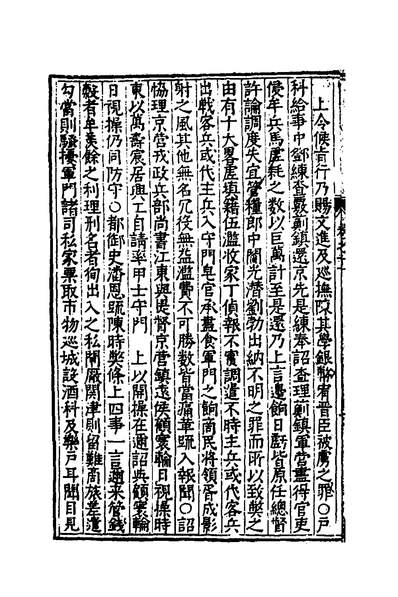 上令候旨行乃賜文進及巡撫陳其學銀幣宥晋臣被虜之罪○戸
科給事中鄧練查覈薊鎮還京先是練奉詔查理薊鎮軍營盡得官吏
侵牟兵馬虛耗之數以巨萬計至是還乃上言邊餉日虧皆原任總督
許論調度失宜管糧郎中閻光潛劉勃出納不明之罪而所以致獘之
由有十大畧虛填籍伍濫收家丁偵報不實調遣不時主兵或代客兵
出戰客兵或代主兵入守門皂官承蠹食軍門之餉商民將領胥成影
射之風其他無名冗役無益濫費不可勝數皆當痛革疏入報聞○詔
協理京營戎政兵部尚書江東與毘督京營鎮遠侯顧寰輪日視操時
東以萬壽宸居興工自請率甲士守門 上以開操在邇詔與顧寰輪
日視操仍同防守○都御史潘恩疏陳時獘條上四事一言邇來管錢
穀者牟羨餘之利理刑名者徇出入之私閘厰關津則留難商旅差遣
勾當則騷擾軍門諸司私家票取市物巡城設酒科及樂戸耳聞目見